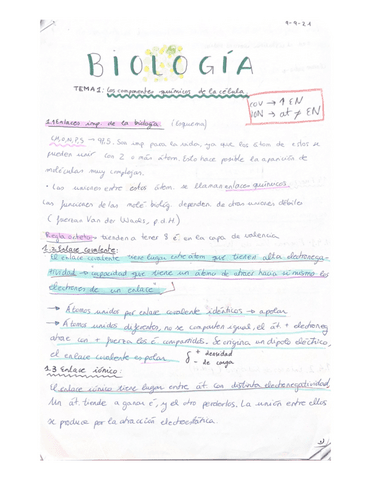 9-9-21
BIOLOGÍA
TEMA 1: Los componentes químicos de la célula
COV → ↑ EN
ION → at ≠ EN
1.1 Enlaces imp. de la biología (Esquema)
C,H,O,N,P,S → 98,5. Son imp para la vida, ya que los átom de estos se
pueden unir con 2 o más átom. Esto hace posible la aparición de
moléculas muy complejas.
• Las uniones entre estos átom. se llaman enlaces químicos.
Las funciones de las molé biológ. dependen de otras uniones débiles
(fuerzas Van der Waals, p.d.H)
Regla octeto → tienden a tener 8 é en su capa de valencia
1.2 Enlace covalente:
El enlace covalente tiene lugar entre átom que tienen alta electronega-
tividad → "capacidad que tiene un átomo de atraer hacia sí mismo los
electrones de un enlace"
→ Átomos unidos por enlace covalente idénticos → apolar
→ Átomos unidos diferentes, no se comparten igual, el át. + electroneg
atrae con + fuerza los é compartidos. Se origina un dipolo eléctrico,
el enlace covalente es polar. δ + densidad
- de carga
1.3 Enlace iónico:
El enlace iónico tiene lugar entre át. con distinta electronegatividad.
Un át. tiende a ganar é, y el otro perderlos. La unión entre ellos
se produce por la atracción electrostática.